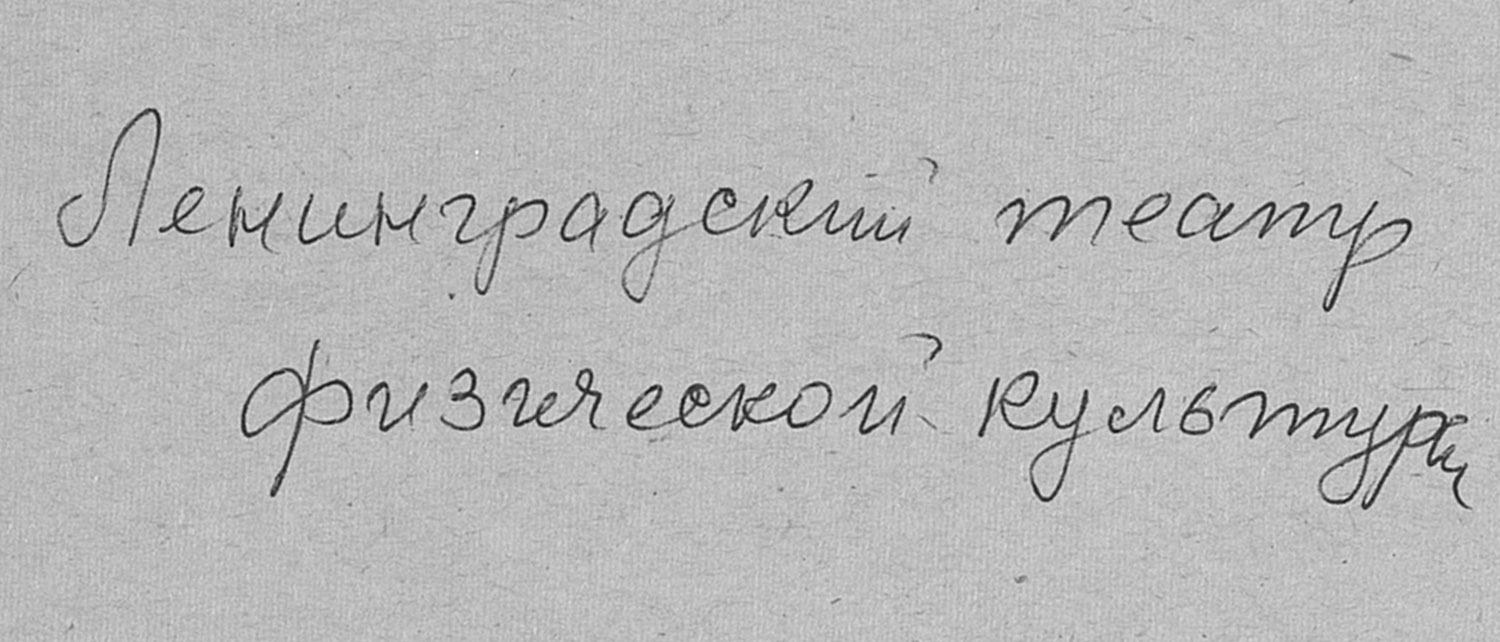 Ленинградский театр
физической культуры